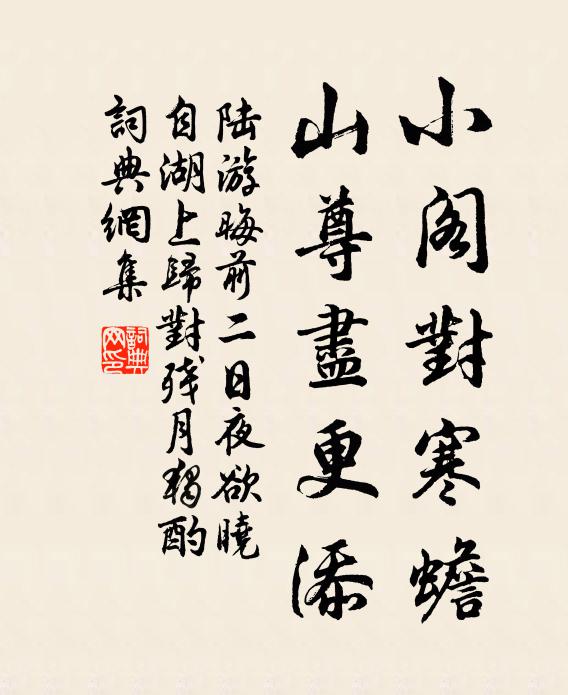 小閣對寒蟾
山尊盡更添
陆游晦前二日夜欲曉
自湖上歸對残月獨酌
詞典網集
詞典網印